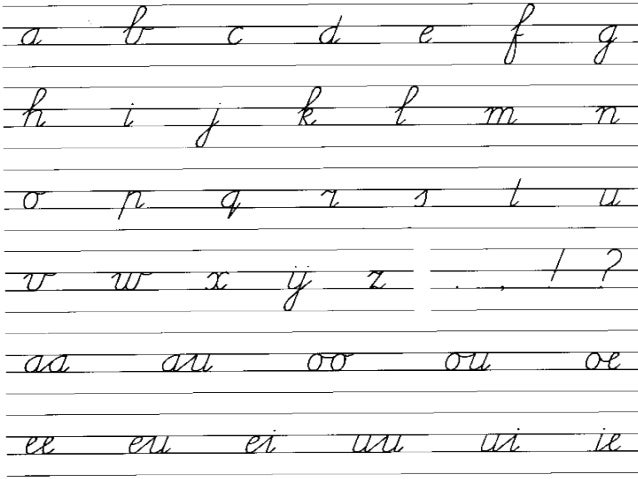 a b c d e f g
h i j k l m n
o p q r s t u
v w x ij z . , ! ?
aa au oo ou oe
ee eu ei uu ui ie